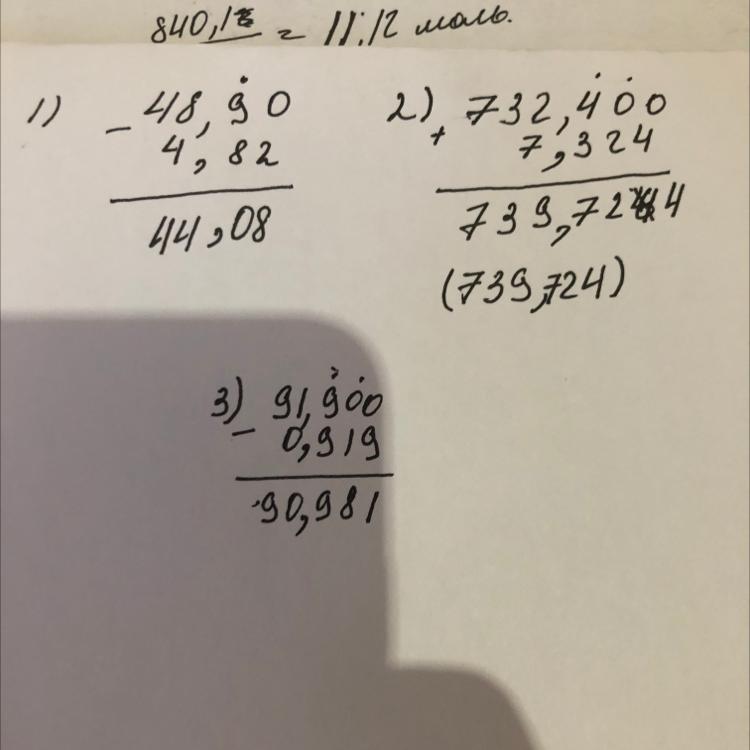 840,1 = 11.12 моль.
1) - 48,90
4,82
44,08
2) + 732,400
7,324
739,724
(739,724)
3) - 91,900
0,919
90,981